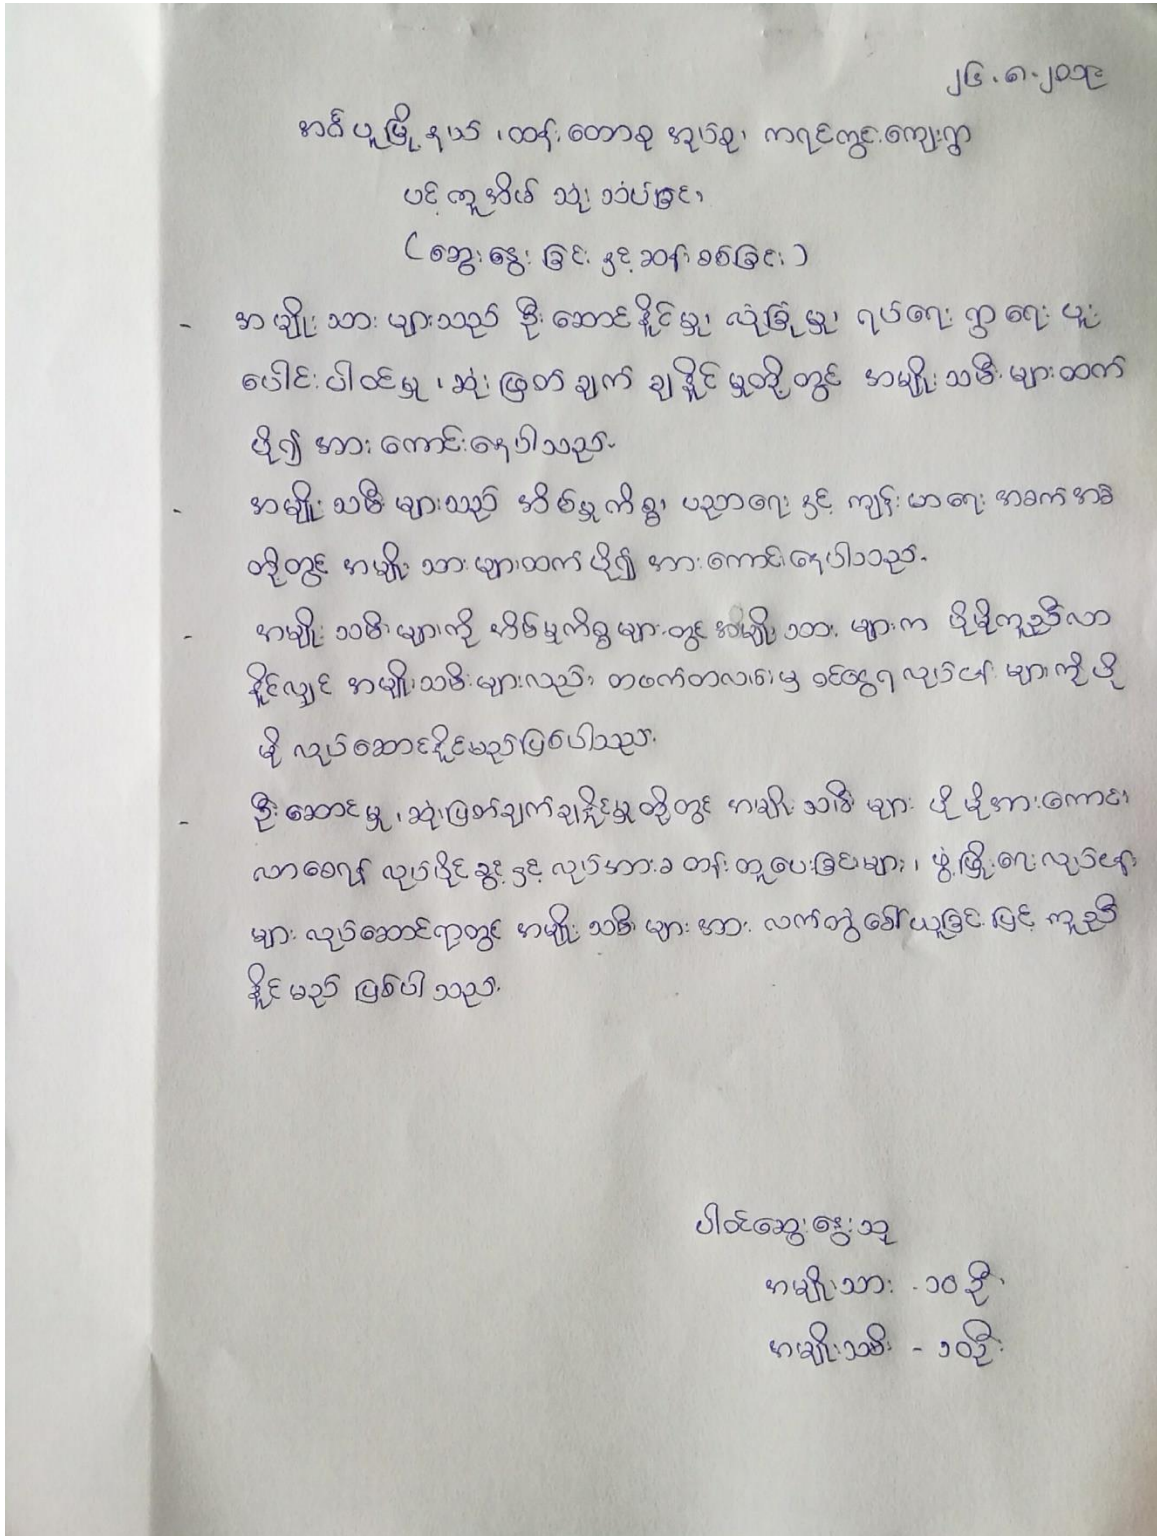 ၂၆.၈.၂၀၁၉
အင်္ဂပူမြို့နယ်၊ ထန်းတောစုအုပ်စု၊ ကရင်ကွင်းကျေးရွာ
ပင့်ကူအိမ် သုံးသပ်ခြင်း
(ဆွေးနွေးခြင်း နှင့် ဆန်းစစ်ခြင်း)
- အမျိုးသားများသည် ဦးဆောင်နိုင်မှု၊ လုံခြုံမှု၊ ရပ်ရေးရွာရေး ပူး
ပေါင်းပါဝင်မှု၊ ဆုံးဖြတ်ချက် ချနိုင်မှုတို့တွင် အမျိုးသမီးများထက်
ပို၍ အားကောင်းနေပါသည်။
- အမျိုးသမီးများသည် အိမ်မှုကိစ္စ၊ ပညာရေး နှင့် ကျန်းမာရေး အခက်အခဲ
တို့တွင် အမျိုးသားများထက် ပို၍ အားကောင်းနေပါသည်။
- အမျိုးသမီးများကို အိမ်မှုကိစ္စများတွင် အမျိုးသားများက ပိုမိုကူညီလာ
နိုင်လျှင် အမျိုးသမီးများလည်း တဖက်တလမ်းမှ ဝင်ငွေရလုပ်ငန်းများကို ပို
မို လုပ်ဆောင်နိုင်မည်ဖြစ်ပါသည်။
- ဦးဆောင်မှု၊ ဆုံးဖြတ်ချက်ချနိုင်မှုတို့တွင် အမျိုးသမီးများ ပိုမိုအားကောင်း
လာစေရန် လုပ်ပိုင်ခွင့်နှင့် လုပ်အားခ တန်းတူပေးခြင်းများ၊ ဖွံ့ဖြိုးရေးလုပ်ငန်း
များ လုပ်ဆောင်ရာတွင် အမျိုးသမီးများအား လက်တွဲခေါ်ယူခြင်းဖြင့် ကူညီ
နိုင်မည် ဖြစ်ပါသည်။
ပါဝင်ဆွေးနွေးသူ
အမျိုးသား - ၁၀ဦး
အမျိုးသမီး - ၁၀ဦး